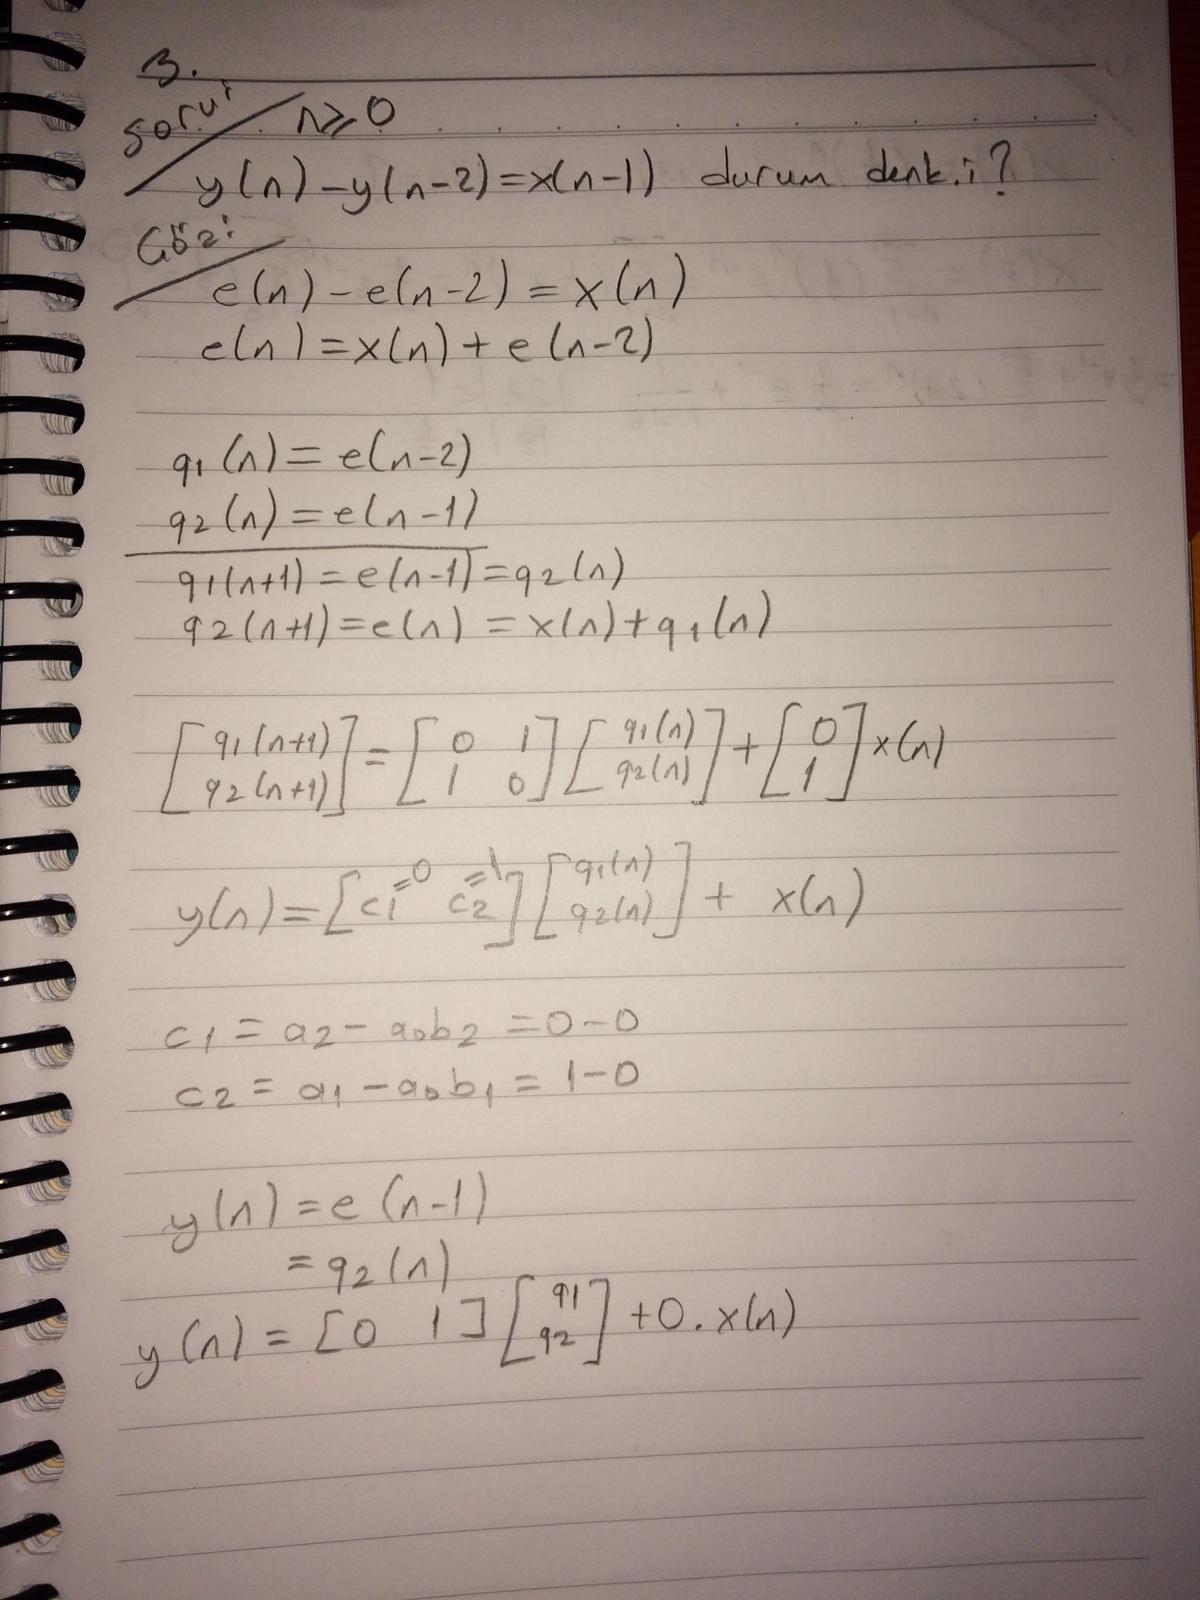 3.
Soru:
n≥0
y(n)-y(n-2)=x(n-1) durum denk.i?
Çöz:
e(n)-e(n-2)=x(n)
e(n)=x(n)+e(n-2)
q1(n)=e(n-2)
q2(n)=e(n-1)
q1(n+1)=e(n-1)=q2(n)
q2(n+1)=e(n)=x(n)+q1(n)
[q1(n+1) q2(n+1)]=[0 1 1 0][q1(n) q2(n)]+[0 1]x(n)
y(n)=[c1=0 c2=1][q1(n) q2(n)]+ x(n)
c1=a2-a0b2=0-0
c2=a1-a0b1=1-0
y(n)=e(n-1)
=q2(n)
y(n)=[0 1][q1 q2]+0.x(n)